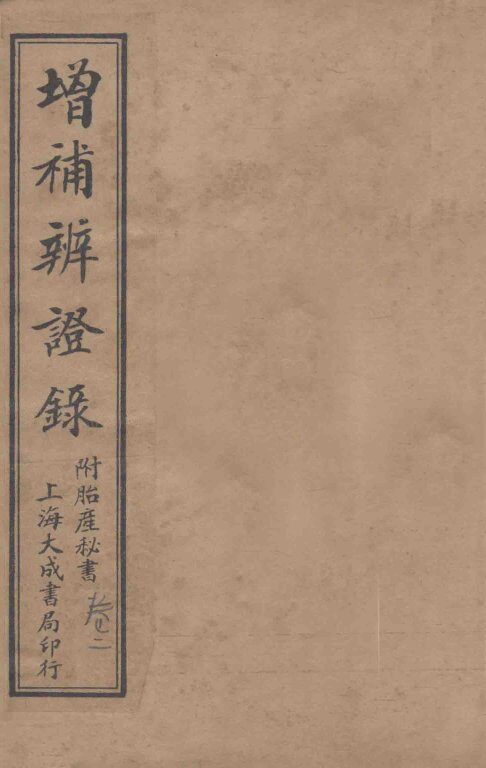 增補辨證錄
附胎產秘書
卷二
上海大成書局印行